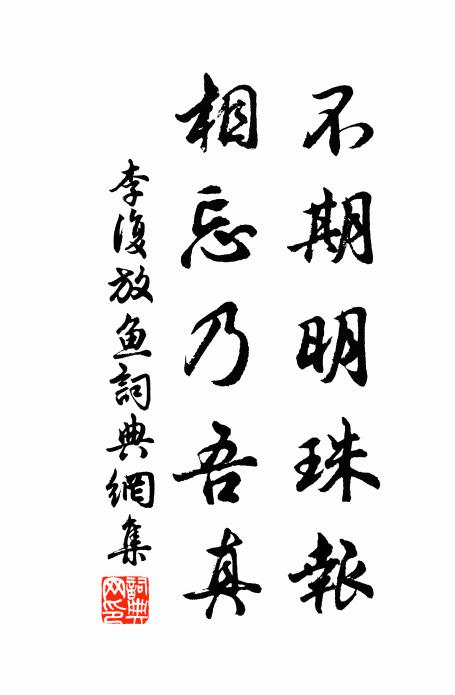 不期明珠報
相忘乃吾真
李復放魚詞典網集
詞典網印